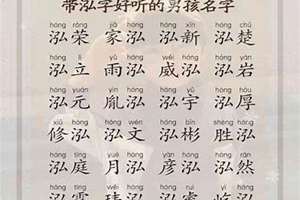 带泓字好听的男孩名字
hóng róng jiā hóng hóng xīn hóng chǔ
泓荣 家泓 泓新 泓楚
hóng lì yǔ hóng wēi hóng hóng yán
泓立 雨泓 威泓 泓岩
hóng yuán yìn hóng hóng yǔ hóng hòu
泓元 胤泓 泓宇 泓厚
xiū hóng hóng wén hóng bīn shèng hóng
修泓 泓文 泓彬 胜泓
hóng tíng yuè hóng yàn hóng hóng rán
泓庭 月泓 彦泓 泓然
hóng wěi hóng hóng ruì hóng
泓 玮泓 泓睿 泓